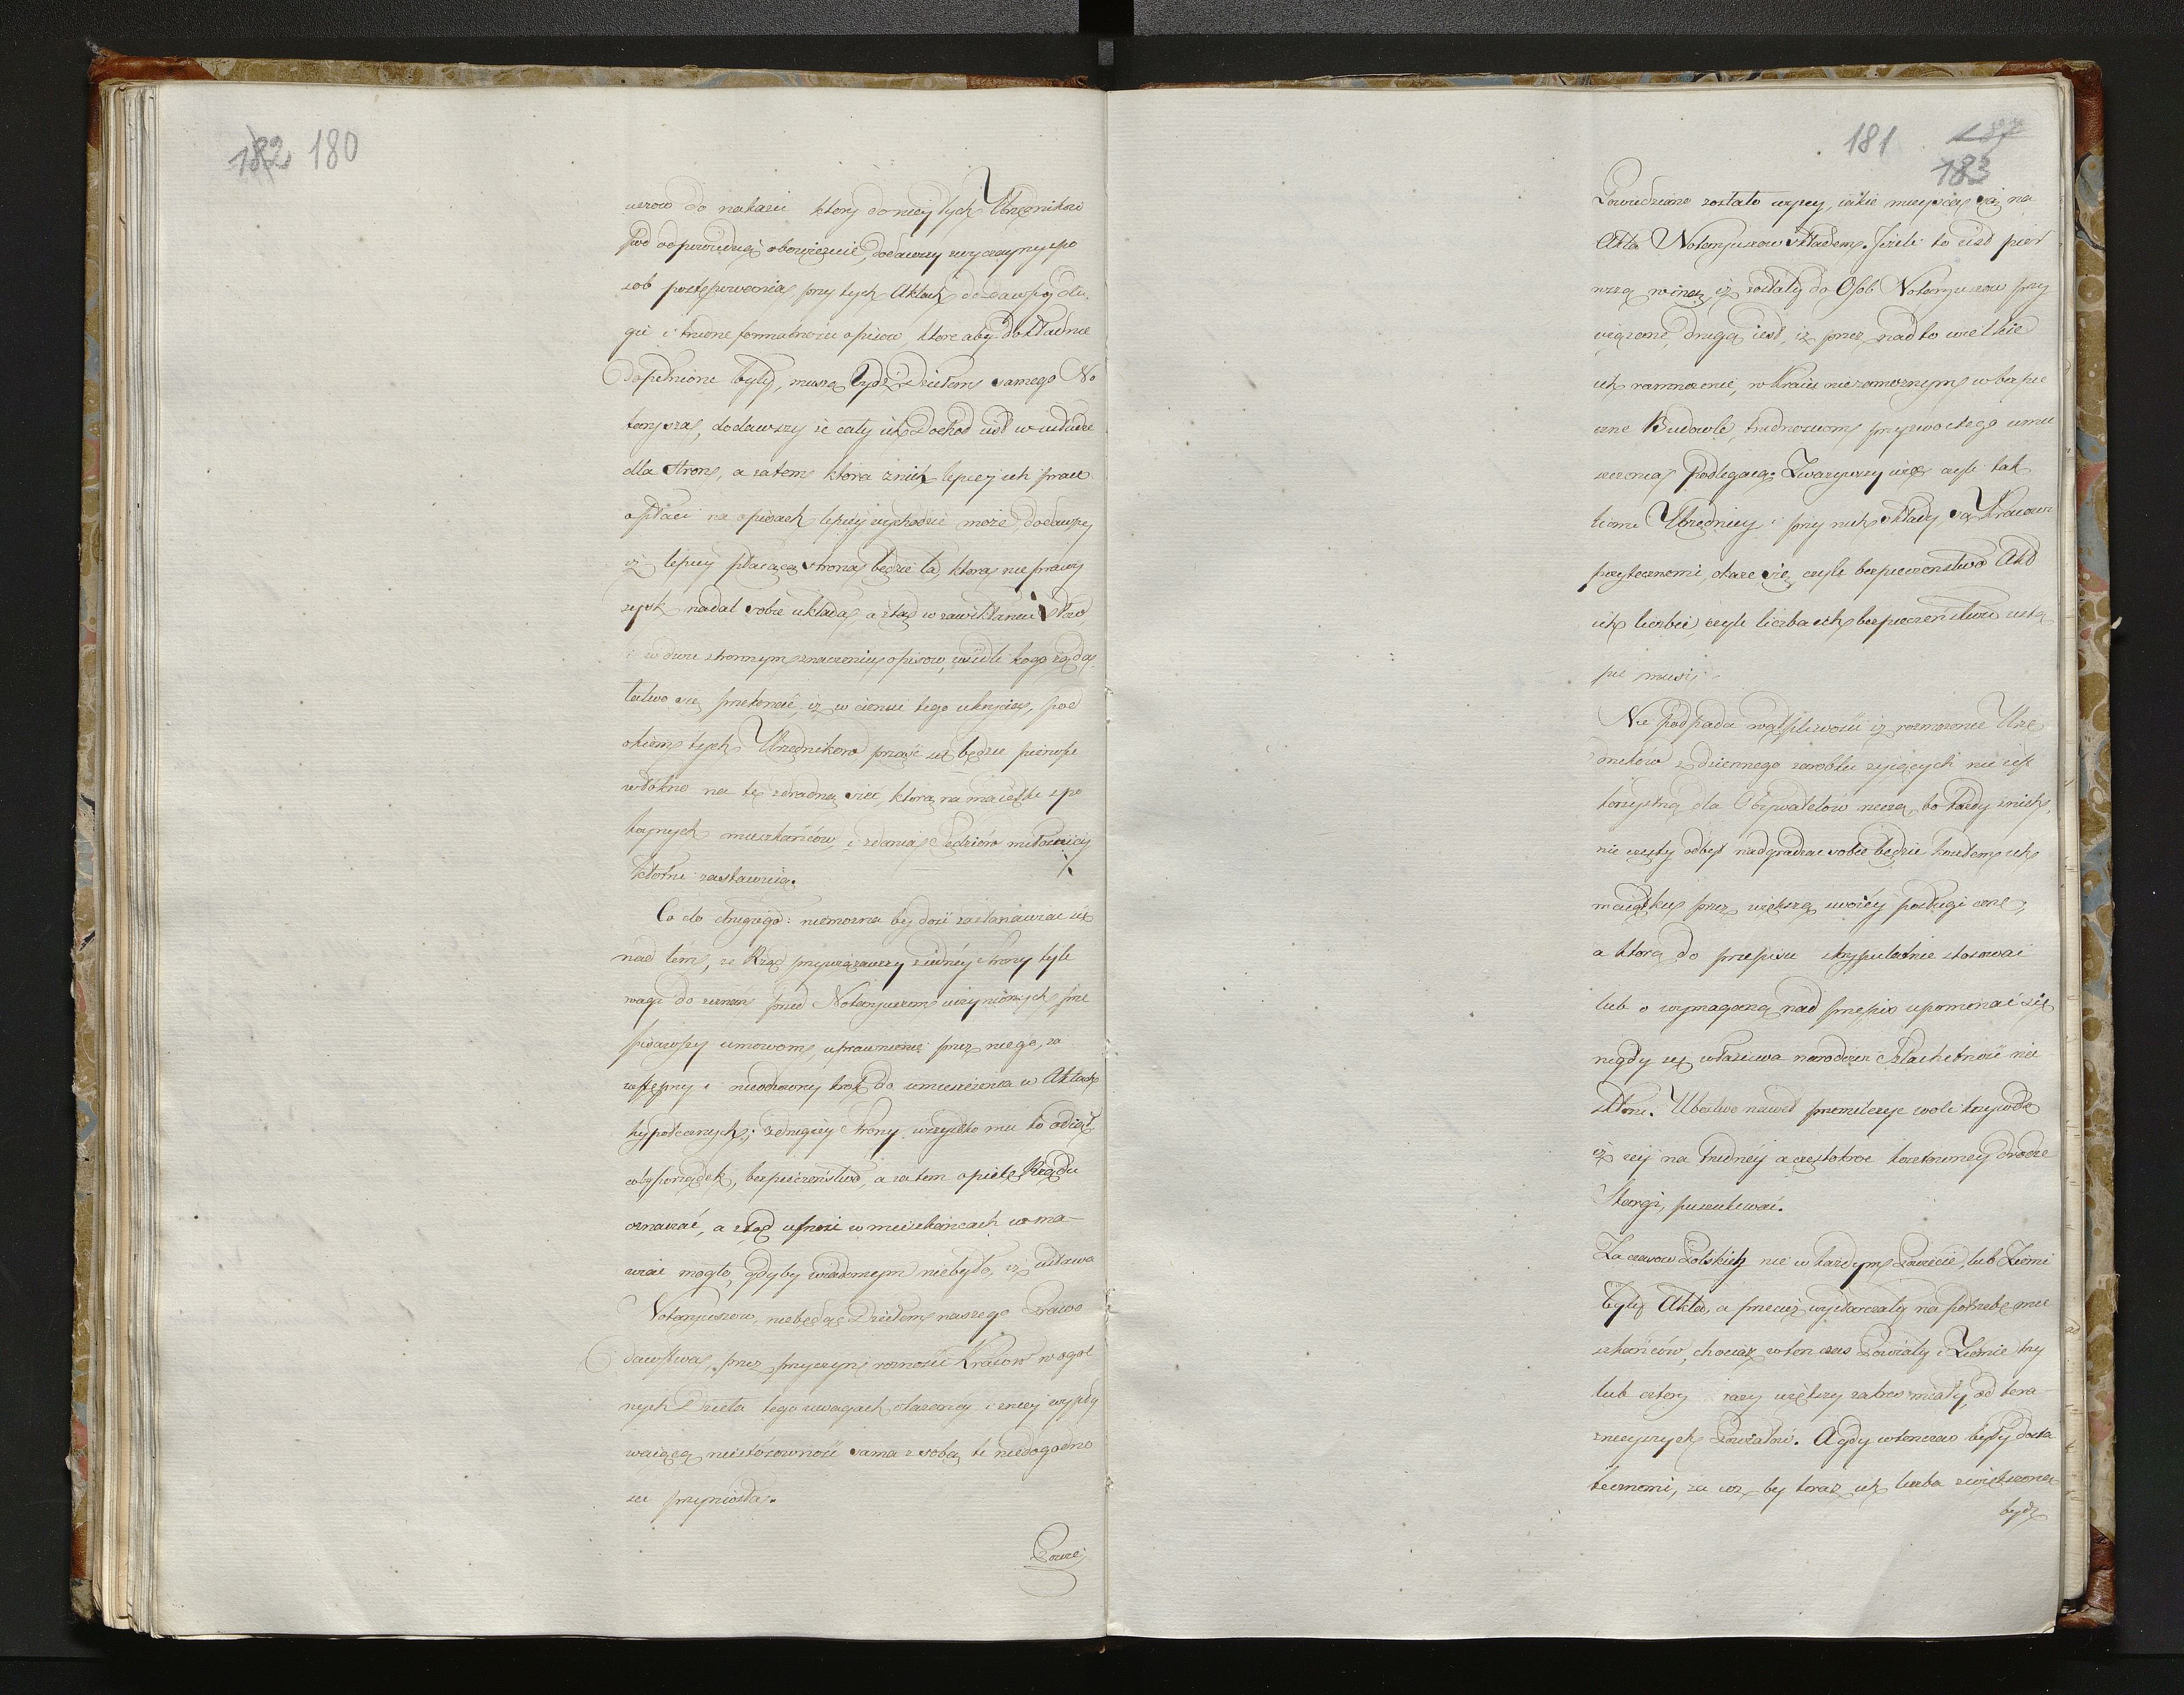 182 180
do nakazu który do niej tych Urzędników
pod odpowiedzią obowięzuie, dodawszy zwyczayny spo
sob postępowania przy tych Aktach dodawszy dłu
gie i trudne formalności opisow, ktore aby dokładnie
dopełnione były, muszą bydź Dziełem samego No
taryusza, dodawszy że cały ich Dochod iest w usłudze
dla Stron, a zatem ktora z nich lepiey ich prace
opłaci na opisach lepiey wychodzić może, dodawszy
iż lepiey płacącą stroną będzie ta, ktora nieprawy
zysk nadal sobie układa, a ztąd w zawikłaniu
i w dwu stronnym znaczeniu opisow,
łatwo się przekonać, iż w cieniu tego ukrycia, pod
okiem tych Urzędnikow prząść się będzie pierwsze
włókno na tę zdradną sieć, ktorą na maiątki spo
koynych mieszkańców, i zdania Sędziów miłośnicy
kłótni zastawiią.
Co do drugiego: niemożna by dość zastanawiać się
nad tém, że Rząd przywiązawszy z iednéy Strony tyle
wagi do zeznań przed Notaryuszem uczynionych prze
pisawszy umowom, uprawnienie przez niego, za
wstępny i nieodzowny krok do umieszczenia w Aktach
hypotecznych; z drugiey Strony wszystko mu to odiął,
coby porządek, bezpieczeństwo, a zatem opiekę Rządu
oznaczać, a ztąd ufność w mieszkańcach wzma
wiać mogło, gdyby wiadomym niebyło, iż ustawa
Notaryuszow, niebędąc Dziełem naszego Prawo
dawstwa, przez przyczyny rożności Kraiow w ogol
nych Dzieła tego uwagach okazanéy i z niey wypły
waiącą niestósowność sama z sobą te niedogodno
ści przyniosła.
Powie
181 183
Powiedziano zostało wyżey, iakie mieysca są na
Akta Notaryuszow składem. Jeżeli to iest pier
wszą winą, iż zostały do Osob Notaryuszow przy
wiązane, drugą iest, iż przez nadto wielkie
ich rozmnożenie, w Kraiu niezamożnym w bezpie
czne Budowle, trudnościom przyzwoitego umie
szczenia podlegaią. Zważywszy więc czyli tak
liczni Urzędnicy i przy nich składy są Kraiowi
pożytecznemi, okaże się, czyli bezpieczeństwo Akt
ich liczbie, czyli liczba ich bezpieczeństwu ustą
pić musi.
Nie podpada wątpliwości iż rozmnożenie Urzę
dników z dziennego zarobku żyiących nie iest
korzystną dla Obywatelów rzeczą, bo każdy z nich,
nie częsty odbyt nadgradzać sobie będzie kosztem ich
maiątku przez większą swoiéy posługi cenę,
a ktorą do przepisu skrypulatnie stosować
lub o wymaganą nad przepis upominać się
nigdy się właściwa narodowi Szlachetność nie
skłoni. Ubóstwo nawet przemilczyć woli krzywdę
iż iey na trudnéy a częstokroć kosztowney drodze
Skargi, poszukiwać.
Za czasow Polskich nie w każdym Powiecie, lub Ziemi
były Akta, a przecież wystarczały na potrzebę mie
szkańców, chociaż wten czas Powiaty i Ziemie trzy
lub cztery razy większy zakres miały, od tera
znieyszych Powiatów. A gdy wtenczas były dosta
tecznemi, za coż by teraz ich liczba zwiększona
bydź